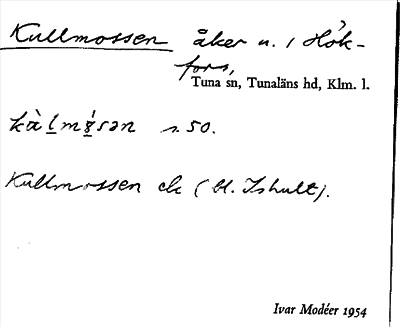 Kullmossen åker u. / Hök-
fors,
Tuna sn, Tunaläns hd, Klm. l.
s. 50.
Kullmossen ck (bl. Ishult).
Ivar Modéer 1954